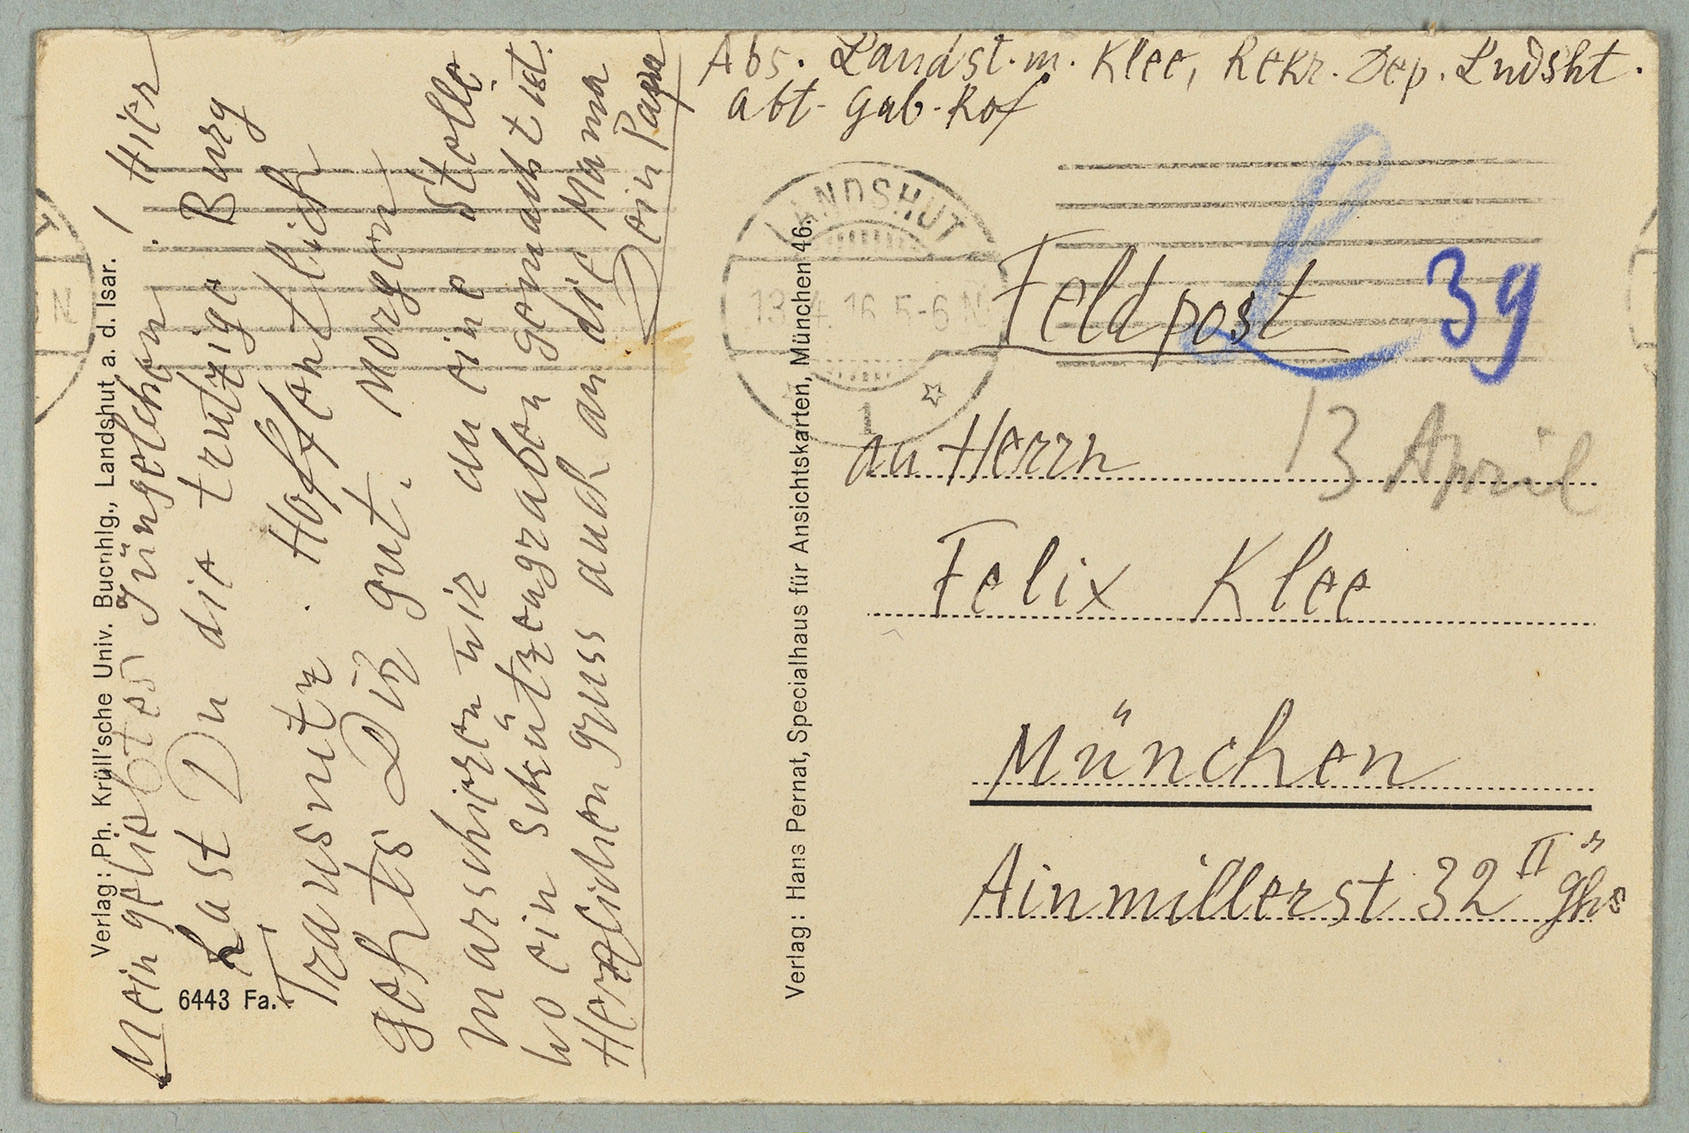 Abs. Landst. m. Klee, Rekr. Dep. Lndsht.
Abt. Gab-Kof
LANDSHUT
13.4.16.5-6 N
1
Feldpost
39
13 April
an Herrn
Felix Klee
München
Ainmillerst 32 II
Verlag: Hans Pernat, Specialhaus für Ansichtskarten, München 46.
Verlag: Ph. Krüll'sche Univ. Buchhlg., Landshut a. d. Isar.
6443 Fa.
Mein geliebtes Jüngelchen! Hier
hast Du die trutzige Burg
Trausnitz. Hoffentlich
gehts Dir gut. Morgen
marschieren wir an eine Stelle
wo ein Schützengraben gemacht ist.
Herzlichen gruss auch an die Mama
Dein Papa